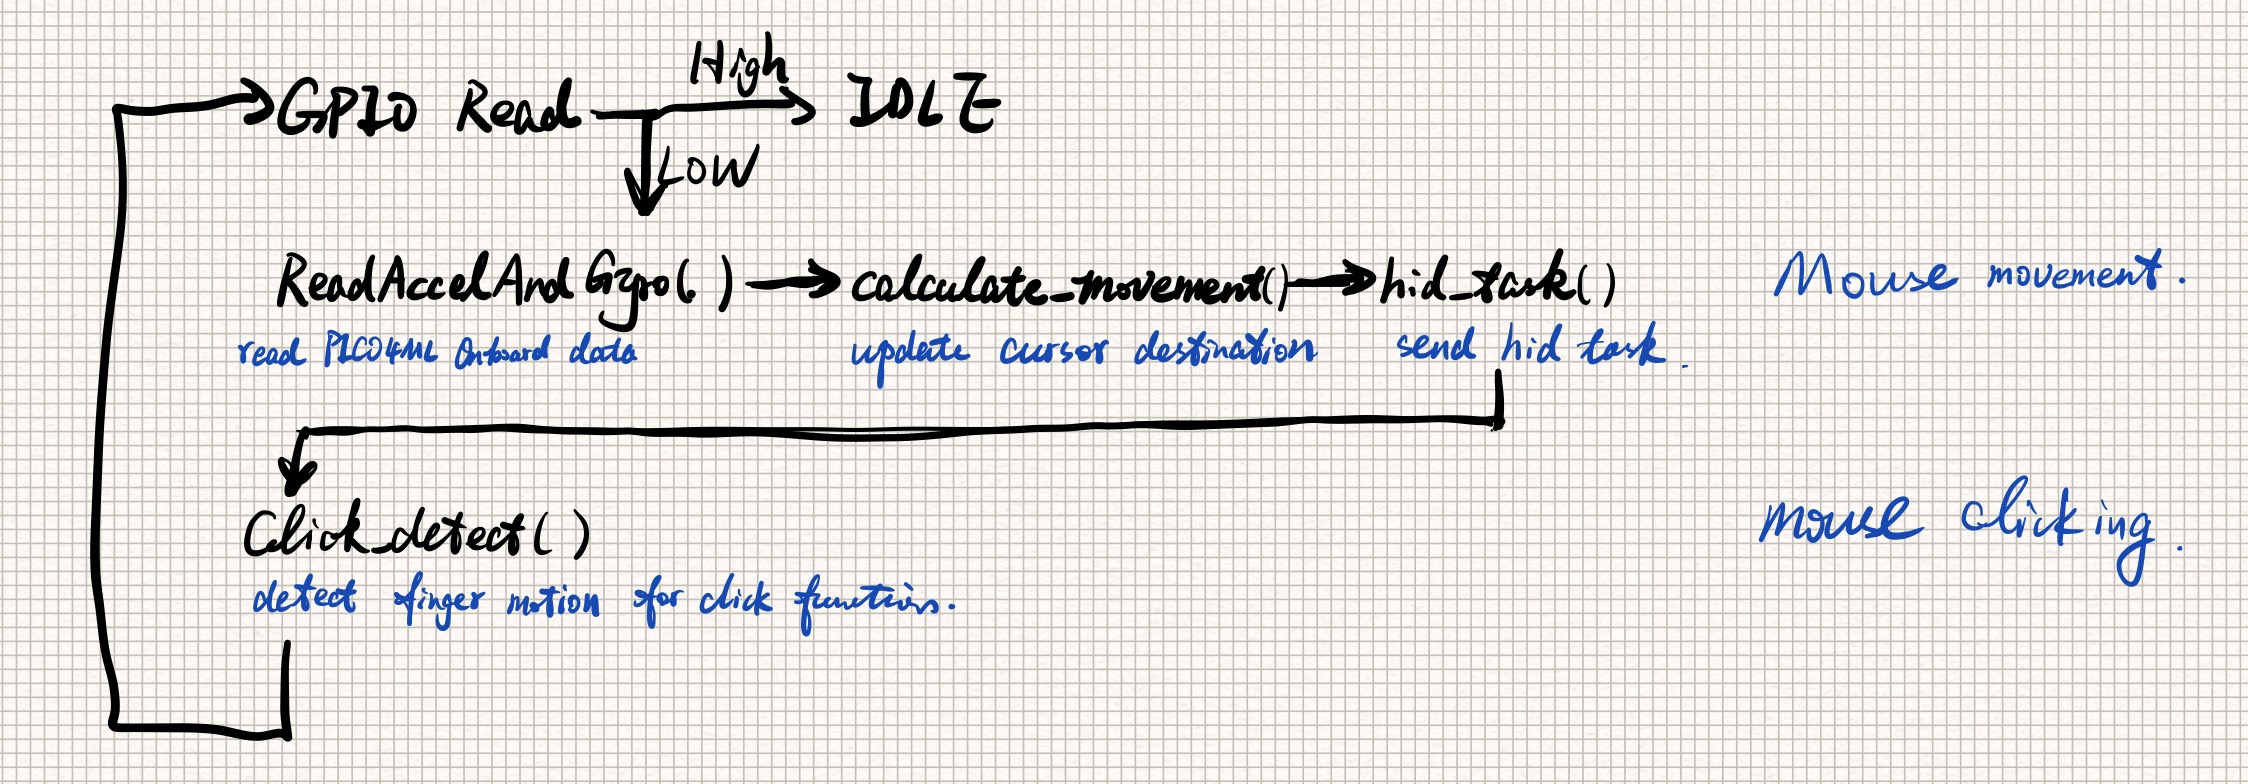 High
GPIO Read IDLE
LOW
ReadAccelAndGyro() calculate_movement() hid_task() Mouse movement.
read PICO4ML Onboard data update cursor destination send hid task.
Click_detect() mouse clicking.
detect finger motion for click function.